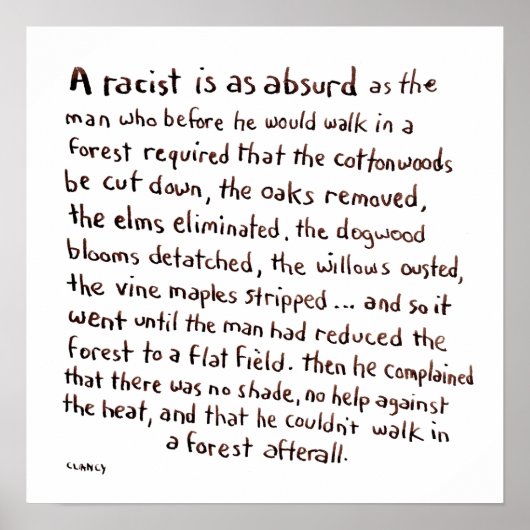 A racist is as absurd as the
man who before he would walk in a
forest required that the cottonwoods
be cut down, the oaks removed,
the elms eliminated, the dogwood
blooms detatched, the willows ousted,
the vine maples stripped... and so it
went until the man had reduced the
forest to a flat field. then he complained
that there was no shade, no help against
the heat, and that he couldn't walk in
a forest afterall.
CLANCY